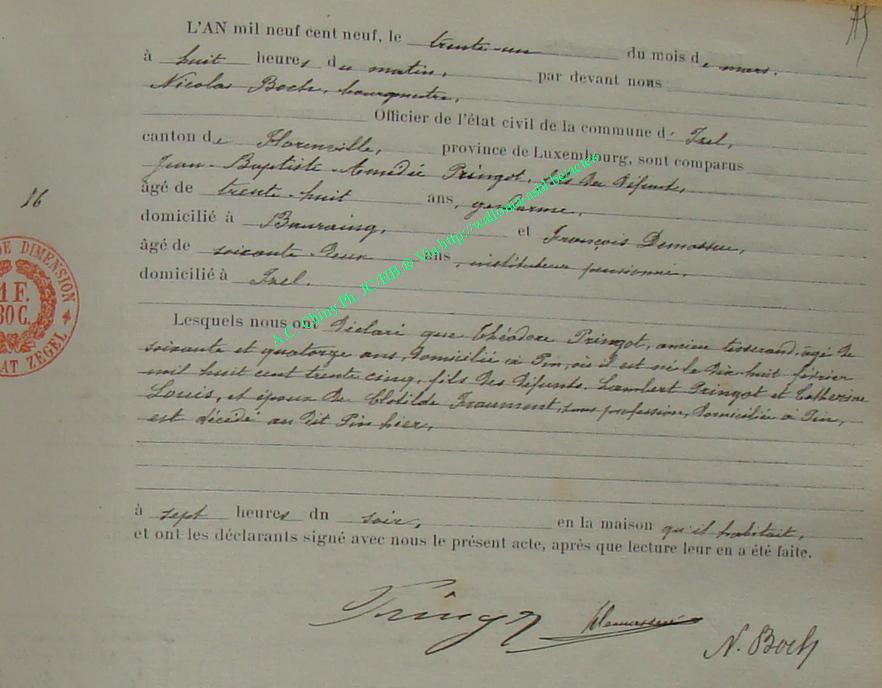 L'AN mil neuf cent neuf, le trente-un du mois de mars.
à huit heures du matin, par devant nous
Nicolas Boch, bourgmestre,
Officier de l'état civil de la commune d' Izel,
canton de Florenville, province de Luxembourg, sont comparus
Jean-Baptiste-Amédée Pringot, fils du défunt,
âgé de trente-huit ans, gendarme,
16
domicilié à Bauraing, et François Demasseu,
âgé de soixante-deux ans, instituteur pensionné,
domicilié à Izel.
DE DIMENSION
1 F.
30 C.
AT ZEGEL
A.C. Chiny Ph. JC HB ® Via http://wallonia-asbl.be
Lesquels nous ont déclaré que Théodore Pringot, ancien tisserand, âgé de
soixante et quatorze ans, domicilié à Pin, où il est né le dix huit février
mil huit cent trente cinq, fils des défunts Lambert Pringot et Catherine
Louis, et époux de Clotilde Fraument, sans profession, domiciliée à Pin,
est décédé au dit Pin hier,
à sept heures du soir, en la maison qu'il habitait,
et ont les déclarants signé avec nous le présent acte, après que lecture leur en a été faite.
Pringot
N. Boch